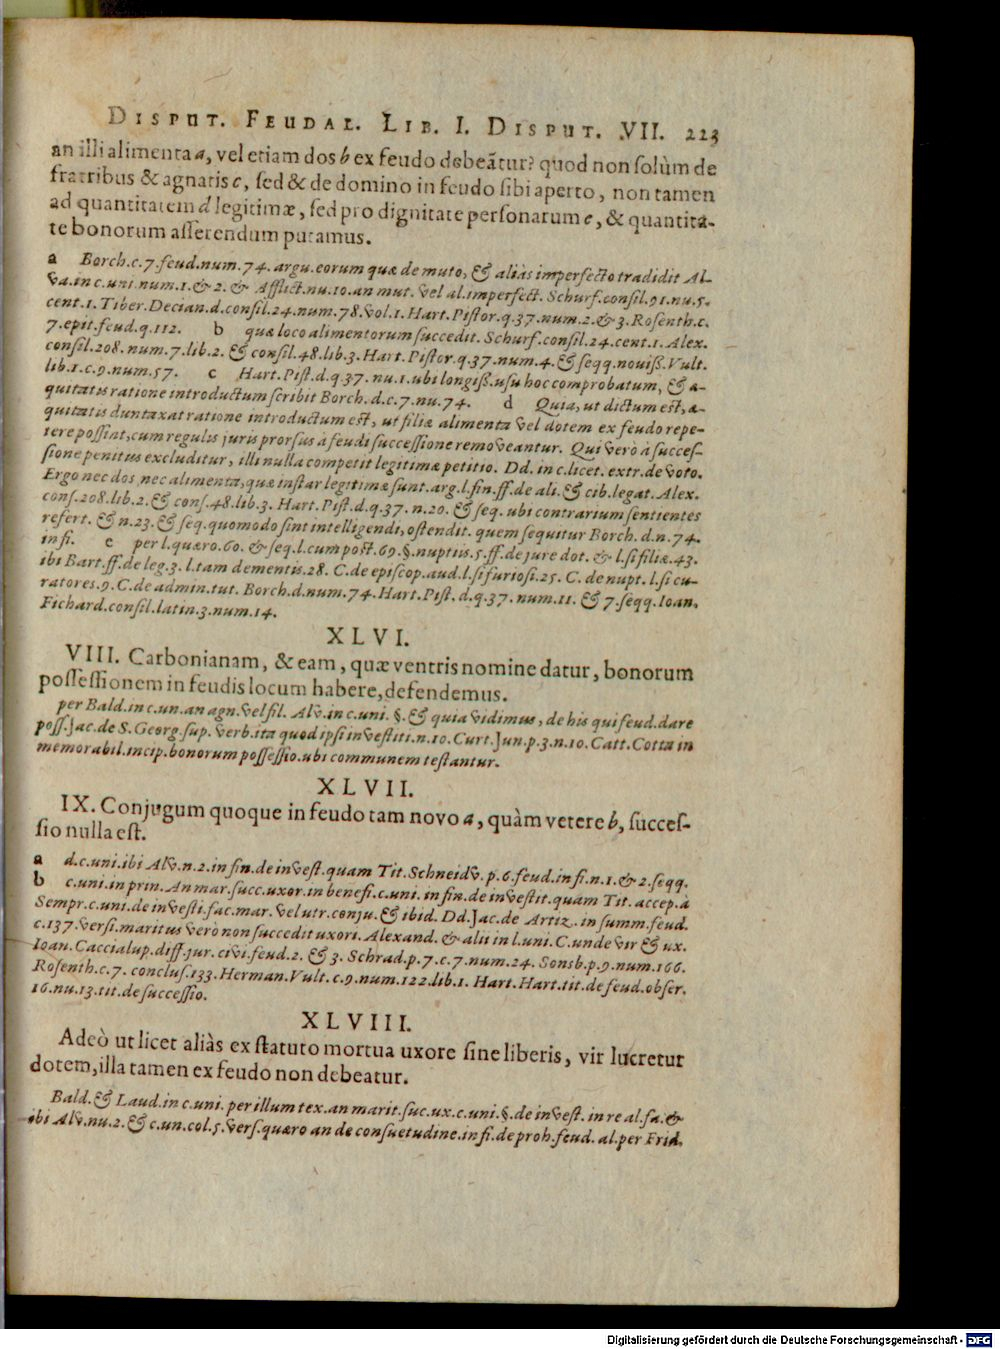 DISPUT. FEUDAL. LIB. I. DISPUT. VII. 223
an illi alimenta a, vel etiam dos b ex feudo debeãtur? quod non ſolùm de
fratribus & agnatis c, ſed & de domino in feudo ſibi aperto, non tamen
ad quantitatem d legitimæ, ſed pro dignitate perſonarum e, & quantita-
te bonorum aſſerendum putamus.
a Borch.c.7.feud.num.74. argu.eorum quæ de muto, & aliàs imperfecto tradidit Al-
va.in c.uni.num.1.& 2. & Afflict.nu.10.an mut. vel al.imperfect. Schurf.conſil.91.nu.5.
cent.1. Tiber.Decian.d.conſil.24.num.78.vol.1. Hart.Piſtor.q.37.num.2.& 3.Roſenth.c.
7.epit.feud.q.112. b quæ loco alimentorum ſuccedit. Schurf.conſil.24.cent.1. Alex.
conſil.208.num.7.lib.2. & conſil.48.lib.3. Hart.Piſtor.q.37.num.4.& ſeqq.noviß.Vult.
lib.1.c.9.num.57. c Hart.Piſt.d.q.37. nu.1.ubi longiß.uſu hoc comprobatum, & æ-
quitatis ratione introductum ſcribit Borch.d.c.7.nu.74. d Quia, ut dictum eſt, æ-
quitatis duntaxat ratione introductum eſt, ut filiæ alimenta vel dotem ex feudo repe-
tere poſſint, cum regulis juris prorſus à feudi ſucceſſione removeantur. Qui verò à ſucceſ-
ſione penitus excluditur, illi nulla competit legitimæ petitio. Dd. in c.licet. extr.de voto.
Ergo nec dos nec alimenta, quæ inſtar legitimæ ſunt. arg.l.fin.ff.de ali.& cib.legat. Alex.
conſ.208.lib.2.& conſ.48.lib.3. Hart.Piſt.d.q.37.n.20.& ſeq. ubi contrarium ſentientes
refert. & n.23.& ſeq.quomodo ſint intelligendi, oſtendit. quem ſequitur Borch.d.n.74.
in fi. e per l.quæro.60. & ſeq.l.cum poſt.69.§.nuptiis.5.ff.de jure dot. & l.ſi filiæ.43.
ibi Bart.ff.de leg.3. l.tam dementis.28. C.de epiſcop.aud.l.ſi furioſi.25. C. de nupt.l.ſi cu-
ratores.9.C.de admin.tut. Borch.d.num.74.Hart.Piſt. d.q.37.num.11.& 7.ſeqq.Ioan.
Fichard.conſil.latin.3.num.14.
XLVI.
VIII. Carbonianam, & eam, quæ ventris nomine datur, bonorum
poſſeſſionem in feudis locum habere, defendemus.
per Bald.in c.un.an agn.vel fil. Alv.in c.uni. §.& quia vidimus, de his qui feud.dare
poſſ.Jac.de S.Georg.ſup.verb.ita quod ipſi inveſtiti.n.10.Curt.Jun.p.3.n.10.Catt.Cotta in
memorabil.incip.bonorum poſſeſſio.ubi communem teſtantur.
XLVII.
IX. Conjugum quoque in feudo tam novo a, quàm vetere b, ſucceſ-
ſio nulla eſt.
a d.c.uni.ibi Alv.n.2.in fin.de inveſt.quam Tit.Schneidv.p.6.feud.in fi.n.1.& 2.ſeqq.
b c.uni.in prin. An mar.ſucc.uxor.in benefi.c.uni. in fin.de inveſtit.quam Tit.accep.à
Sempr.c.uni.de inveſti.fac.mar. vel utr.conju.& ibid. Dd.Jac.de Artiz. in ſumm.feud.
c.137.verſi.maritus verò non ſuccedit uxori. Alexand. & alii in l.uni. C.unde vir & ux.
Ioan. Caccialup.diff.jur. civi.feud.2. & 3. Schrad.p.7.c.7.num.24. Sonsb.p.9.num.166.
Roſenth.c.7. concluſ.133.Herman.Vult.c.9.num.122.lib.1. Hart.Hart.tit.de feud.obſer.
16.nu.13.tit.de ſucceſſio.
XLVIII.
Adeò ut licet aliàs ex ſtatuto mortua uxore ſine liberis, vir lucretur
dotem, illa tamen ex feudo non debeatur.
Bald.& Laud.in c.uni.per illum tex.an marit.ſuc.ux.c.uni.§.de inveſt. in re al.fa.&
ibi Alv.nu.2.& c.un.col.5.verſ.quæro an de conſuetudine.in fi.de proh.feud. al.per Frid.
Digitalisierung gefördert durch die Deutsche Forschungsgemeinschaft - DFG